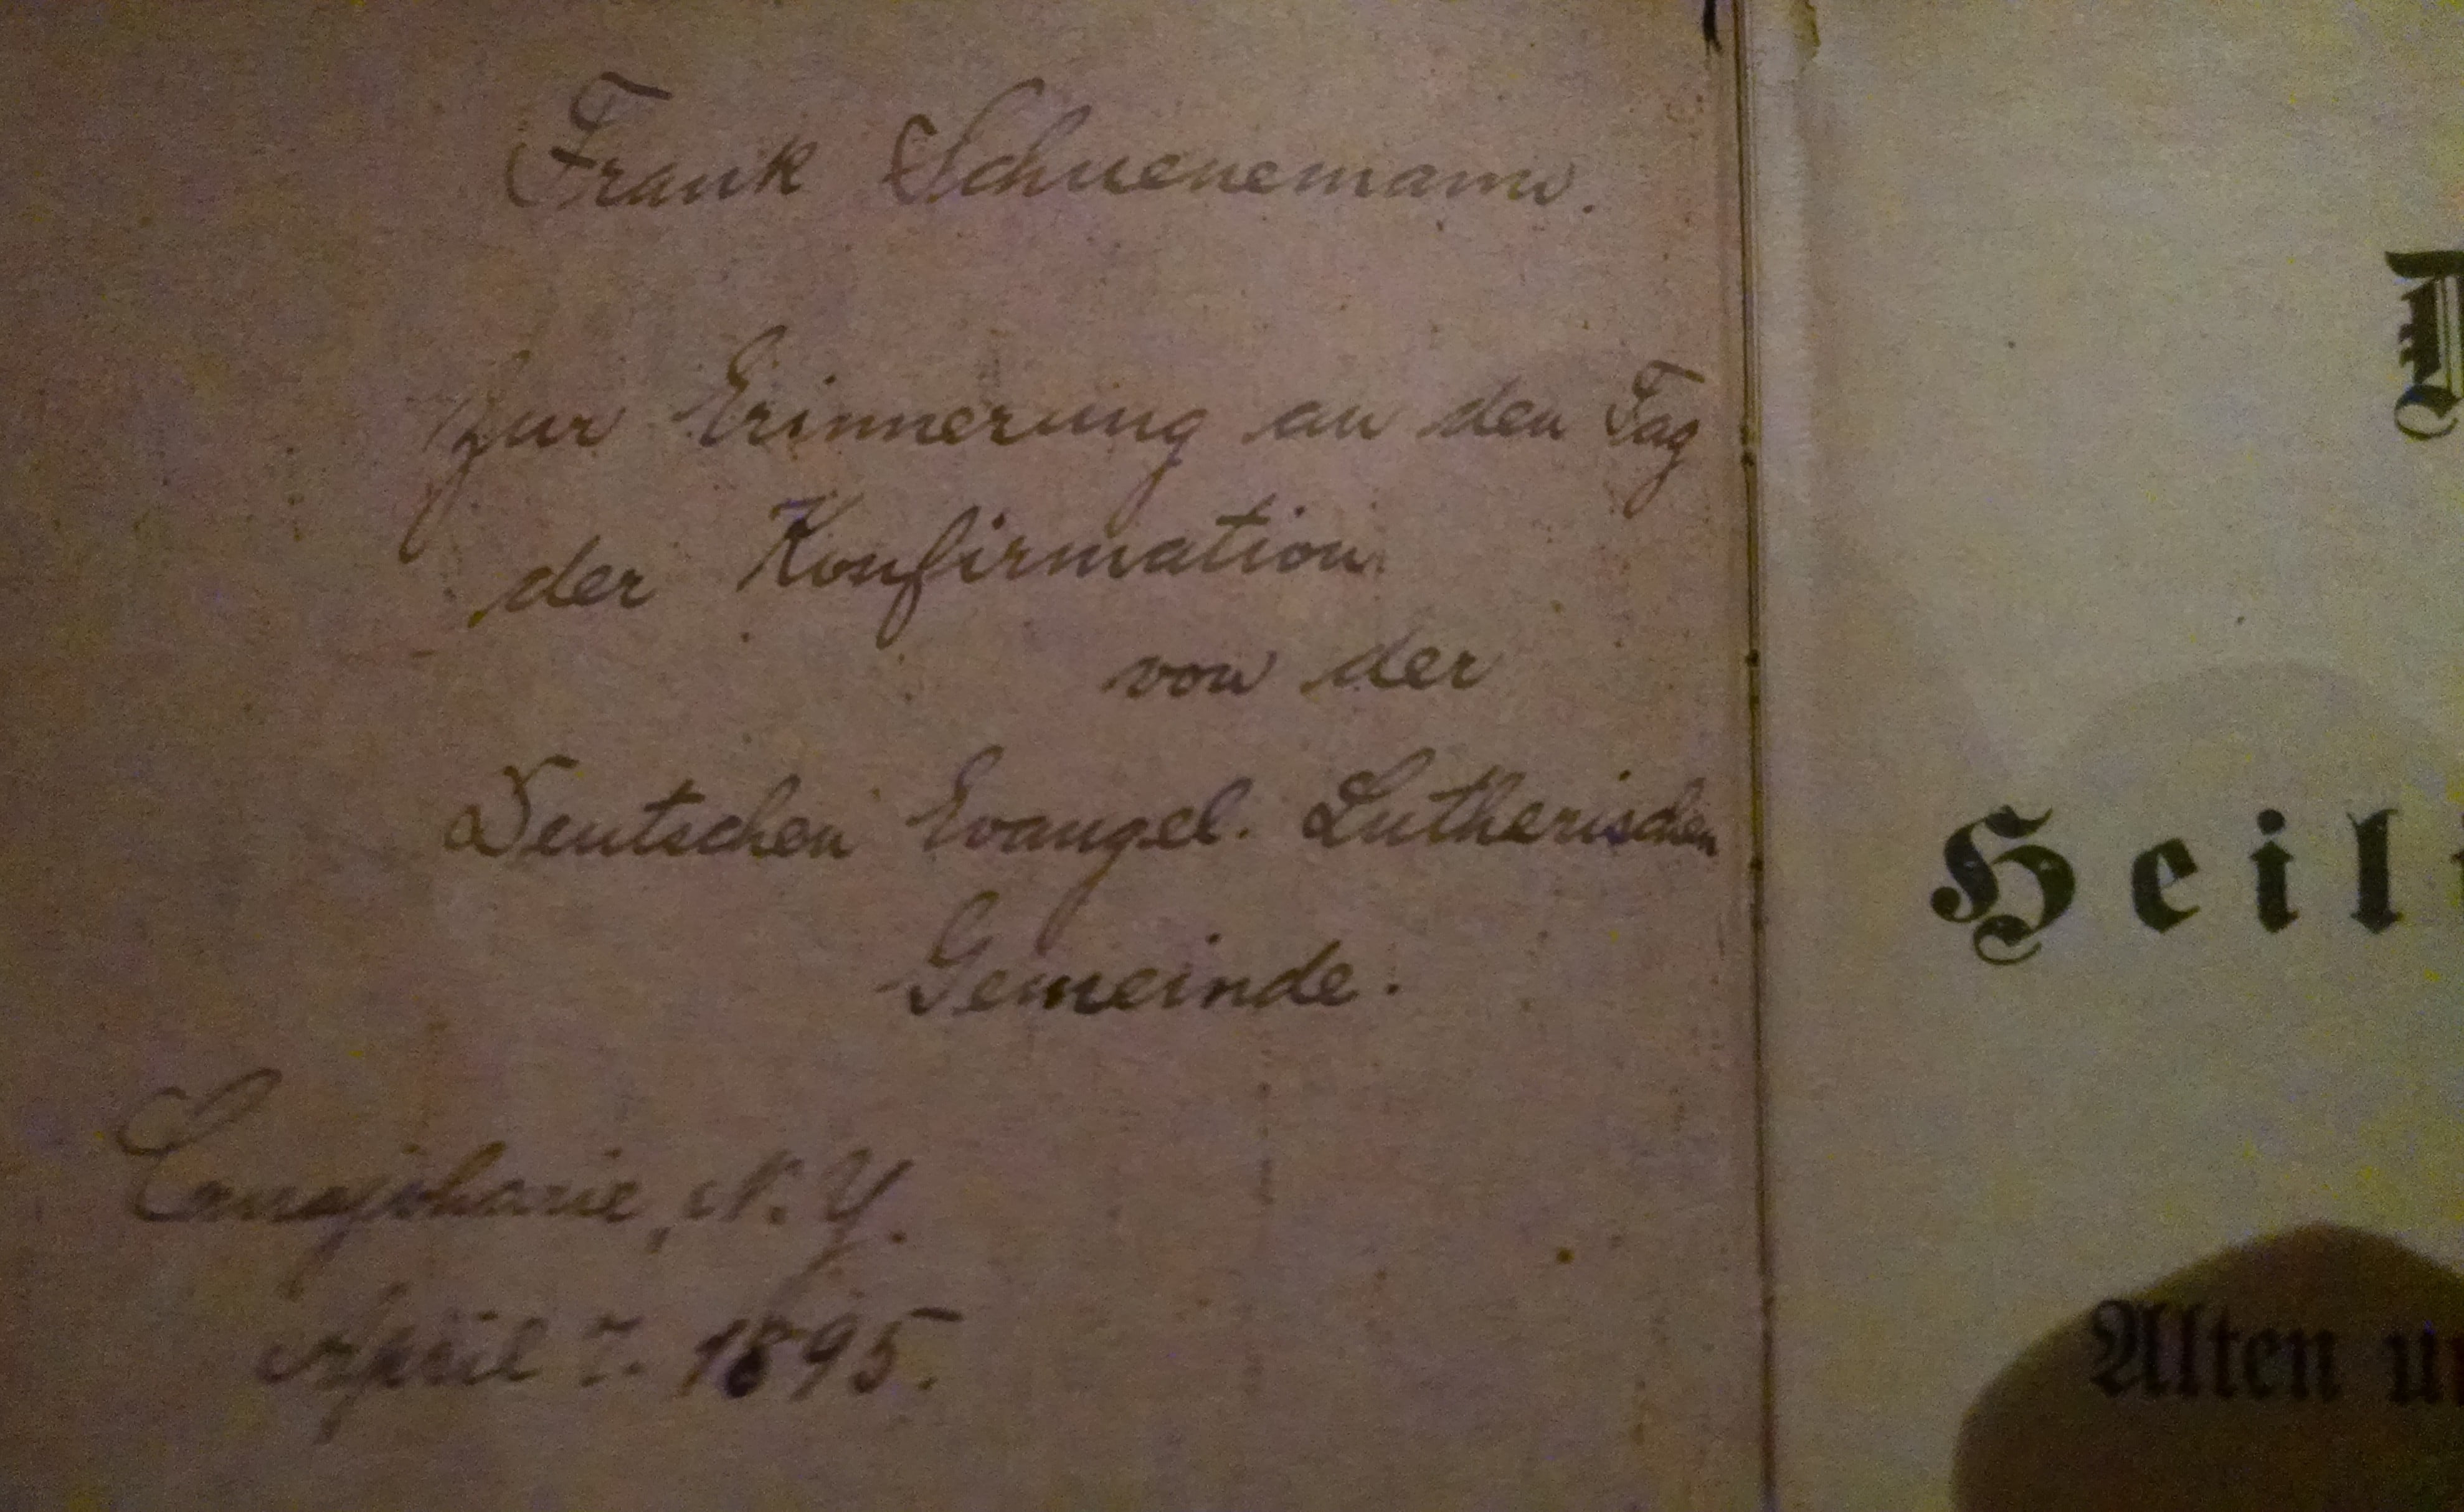 Frank Schuenemann.
Zur Erinnerung an den Tag
der Konfirmation
von der
Deutschen Evangel. Lutherischen
Gemeinde.
Canajoharie, N. Y.
April 7. 1895.
D
Heili
Alten u